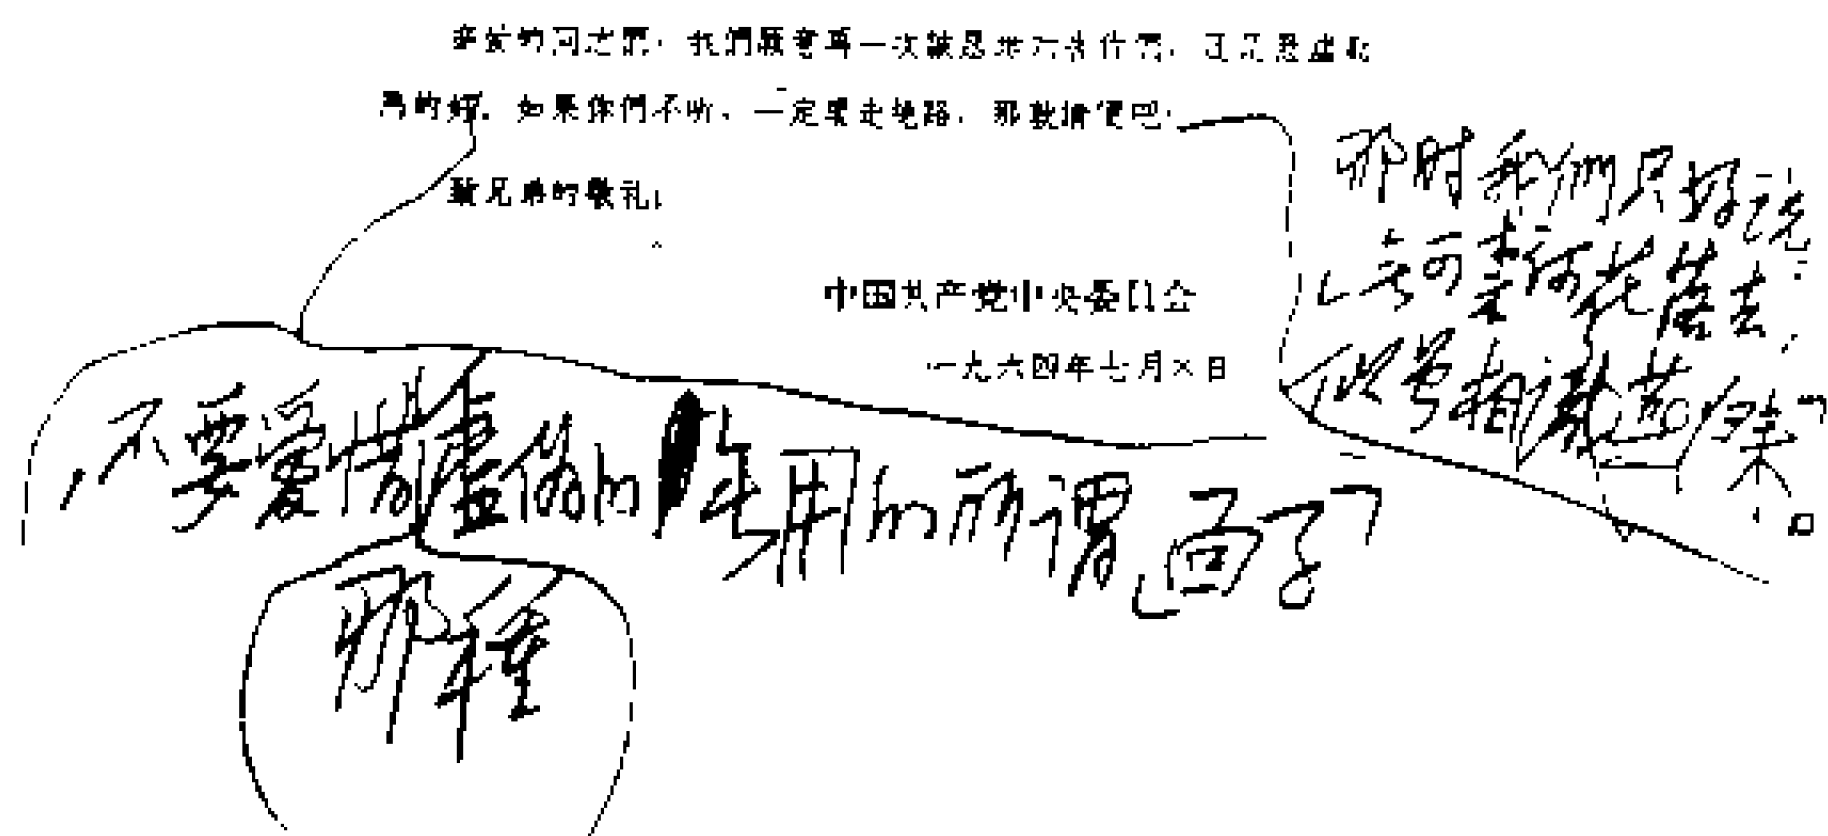 亲爱的同志們,我們願意再一次誠恳地忠告你們,还是悬崖勒
馬的好,如果你們不听,一定要走绝路,那就請便吧!
致兄弟的敬礼!
中国共产党中央委員会
一九六四年七月×日
那时我們只好說:
「无可奈何花落去,
似曾相識燕归来」。
,不要爱惜虚偽的无用的所谓「面子」
那種